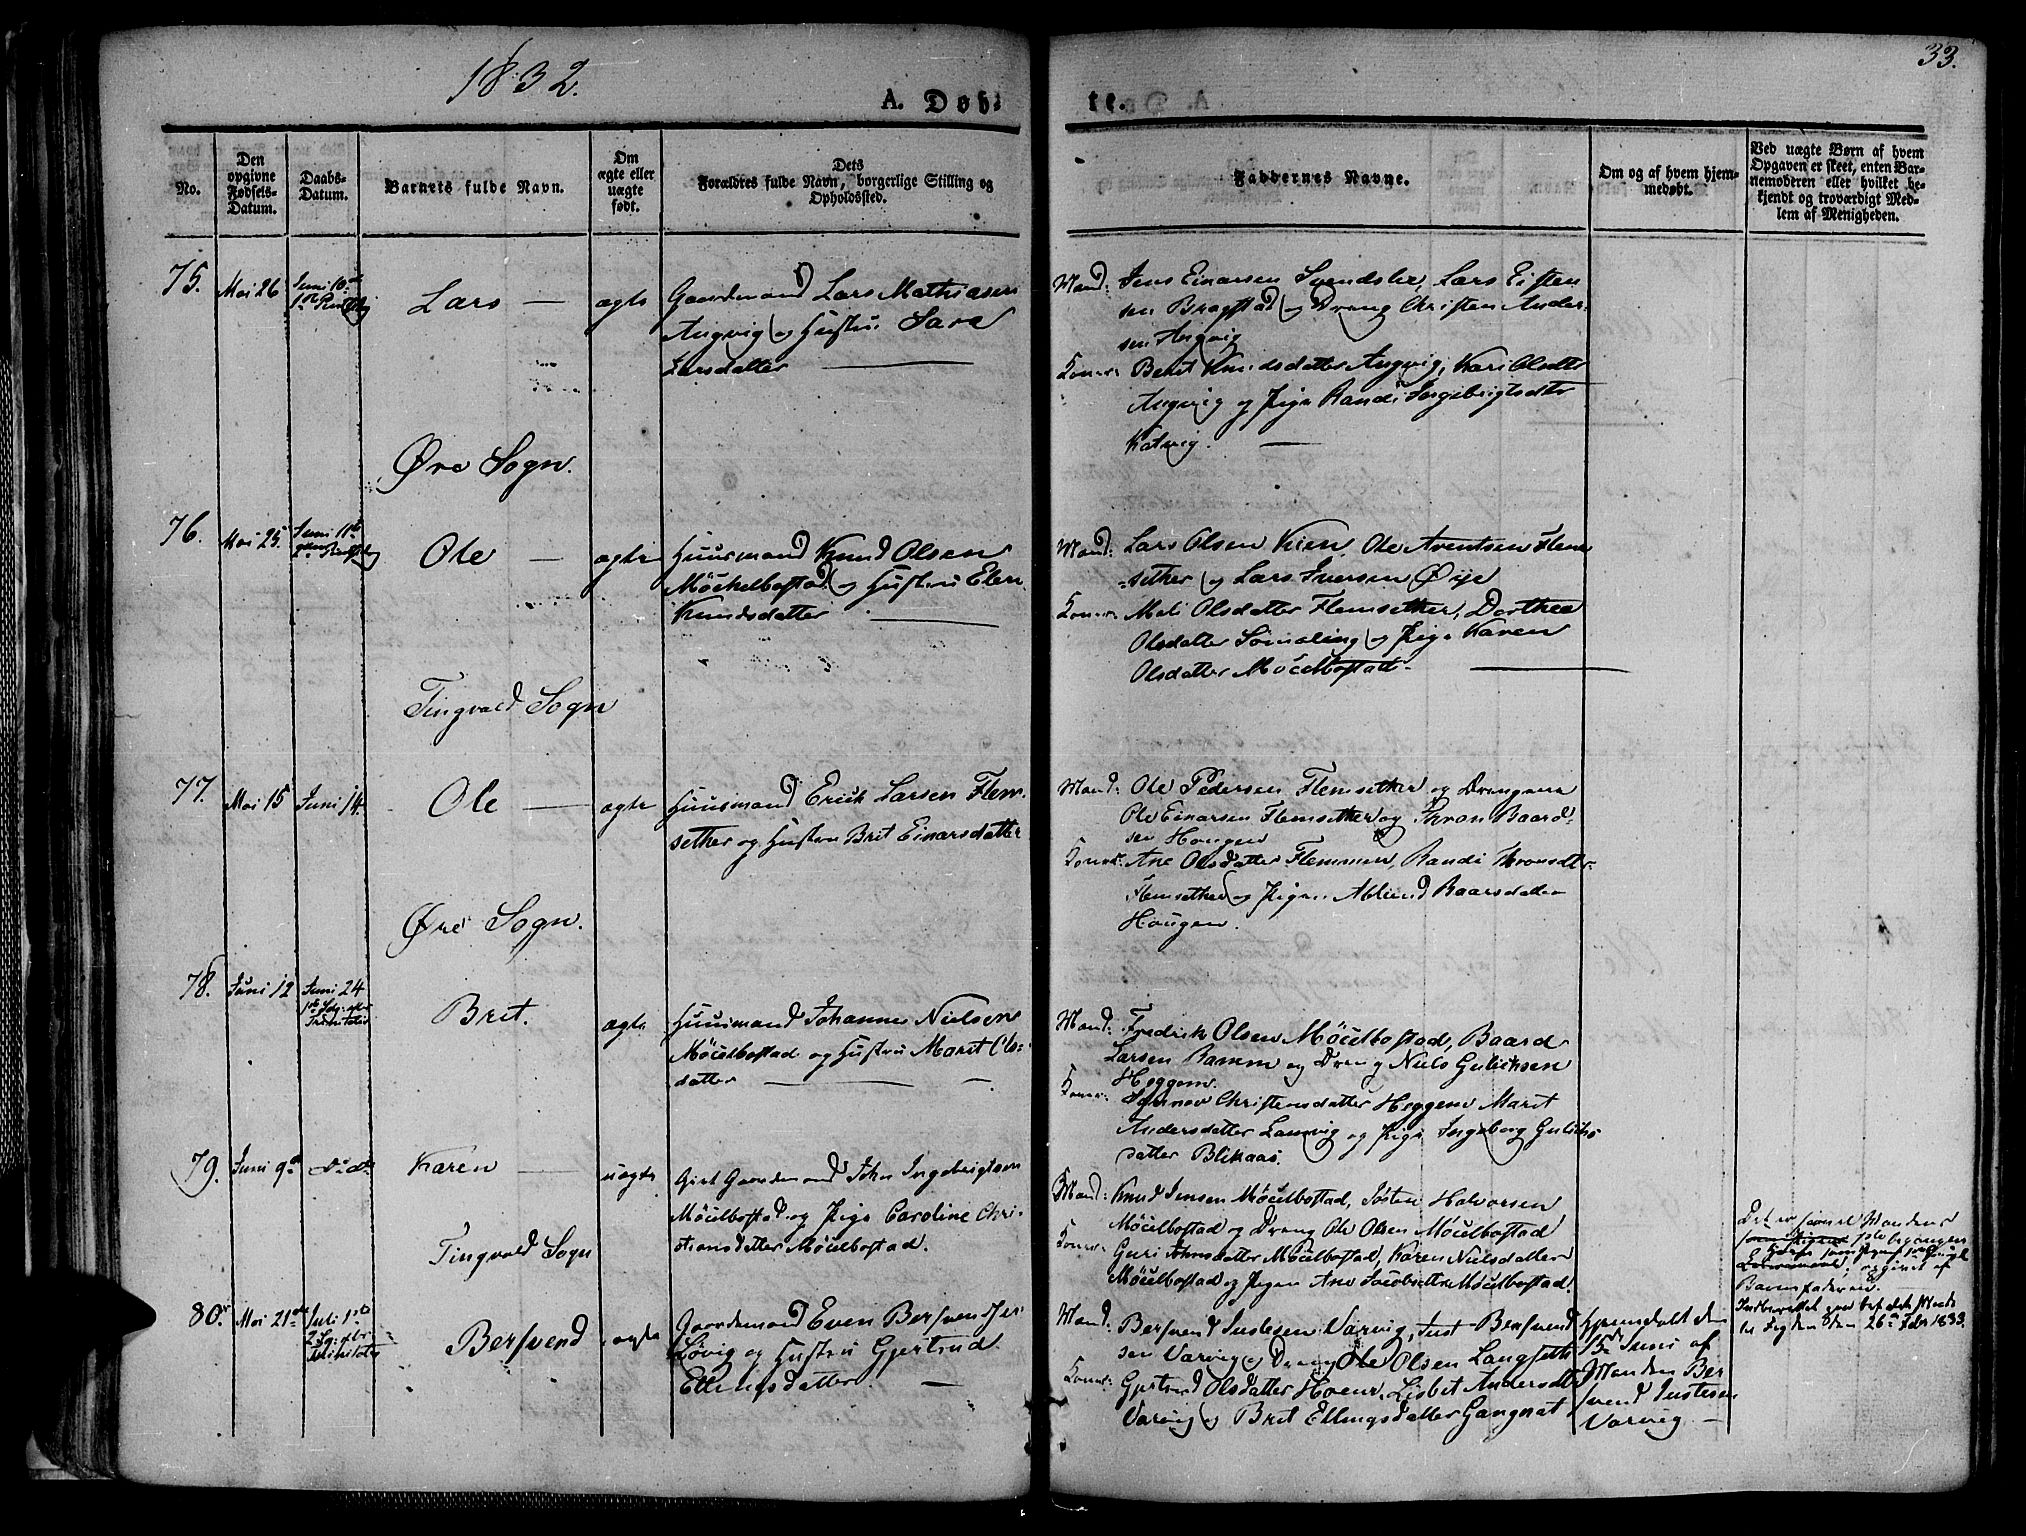 1832.
33.
A. Døb-
te.
No.
Den opgivne Fødsels-Datum.
Daabs-Datum.
Barnets fulde Navn.
Om ægte eller uægte født.
Dets Forældres fulde Navn, borgerlige Stilling og Opholdssted.
Faddernes Navne.
Om og af hvem hjem-
medøbt.
Ved uægte Børn af hvem
Opgaven er skeet, enten Bar-
nemoderen eller hvilket be-
kjendt og troværdigt Med-
lem af Menigheden.
75.
Mai 26
Juni 10de
Lars —
ægte
Gaardmand Lars Mathiasen
Angvig og Hustru
Larsdatter
Mænd: Jens Einarsen Svendslie, Lars Eisten
sen Bragstad og Dreng Christen Ander-
sen Angvig
Koner: Beret Knudsdatter Angvig, Kari Olsdtr
Angvig og Pige Randi Ingebrigtsdtr
Kalvig.
Øre Sogn.
76.
Mai 25.
Juni 11te
Ole —
ægte
Huusmand Knud Olsen
Möchelbostad og Hustru Elen
Knudsdatter
Mænd: Lars Olsen Ole Arentsen Flem
sether og Lars Iversen Øije
Koner: Mali Olsdatter Flemsether, Dorthea
Olsdatter og Pige Karen
Olsdatter Möcelbostad.
Tingvold Sogn
77.
Mai 15
Juni 14.
Ole —
ægte
Huusmand Erick Larsen Flem-
sether og Hustru Brit Einarsdatter
Mænd: Ole Pedersen Flemsether og Drengene
Ole Einarsen Flemsether og Thron Baard-
sen Hougen
Koner: Ane Olsdatter Flemmen, Randi Thronsdtr
Flemsether og Pige Baarsdatter
Hougen.
Øre Sogn.
78.
Juni 12
Juni 24
Brit.
ægte
Huusmand Johannes Nielsen
Möcelbostad og Hustru Marit Ols-
datter
Mænd: Fredrik Olsen Möcelbostad, Baard
Larsen Ramm og Dreng Niels Gulichsen
Heggem.
Koner: Christensdatter Heggem Marit
Andersdatter og Pige Ingeborg Gulichs
datter Blikaas.
79.
Juni 9de
Karen —
uægte
Gift Gaardmand John Ingebrigtsen
Möcelbostad og Pige Caroline Chri-
stiansdatter Möcelbostad.
Mænd: Knud Jensen Möcelbostad, Halvorsen
Möcelbostad og Dreng Ole Olsen Möcelbostad
Koner: Guri Johnsdatter Möcelbostad, Karen Nielsdatter
Möcelbostad og Pigen Ane Jacobsdtr Möcelbostad.
opgivet af
Barnefaderen.
26de Febr 1833.
Tingvold Sogn
80.
Mai 21de
Juli 1ste
Bersvend
ægte
Gaardmand Even Bersvendsen
Løvig og Hustru Gjertrud
Ellingsdatter. —
Mænd: Bersvend Justesen Varvig, Just Bersvend
sen Varvig og Dreng Ole Olsen Langseth
Koner: Gjertrud Olsdatter Hoem, Lisbet Andersdtr
Varvig og Brit Ellingsdatter Gangnat
Hjemdøbt den
15de Juni af
Manden Ber
svend Justesen
Varvig —